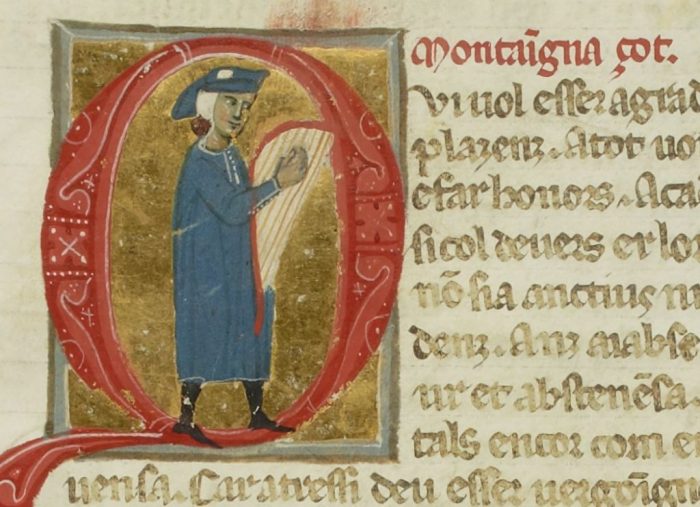 Montaĩgna çot.
QVi uol esser agrad
plazenz. A tot uo
e far honors. A cal
si col deuers er lor
nõ sia anctius ni
denz. Anz aiabse
ur et abstenẽsa.
tals encor com e
uensa. Car atressi deu esser vergõigna